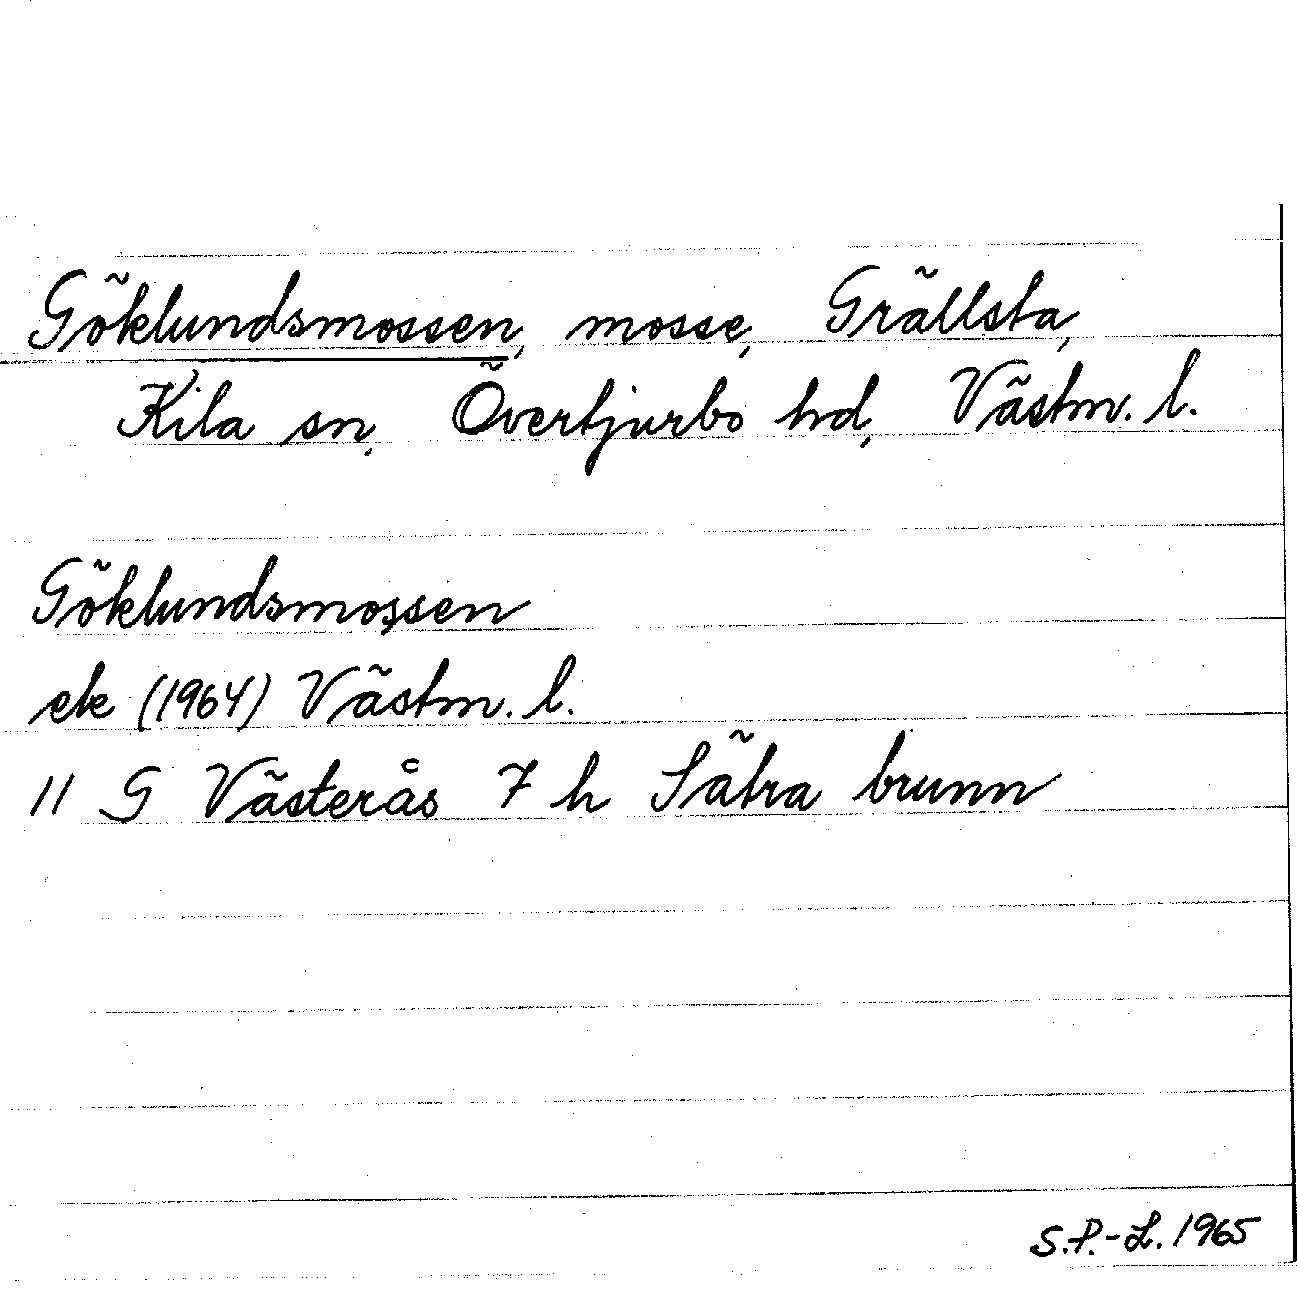 Göklundsmossen, mosse, Grällsta,
Kila sn, Övertjurbo hd, Västm. l.
Göklundsmossen
ek (1964) Västm. l.
11 G Västerås 7 h Sätra brunn
S.P.-L. 1965